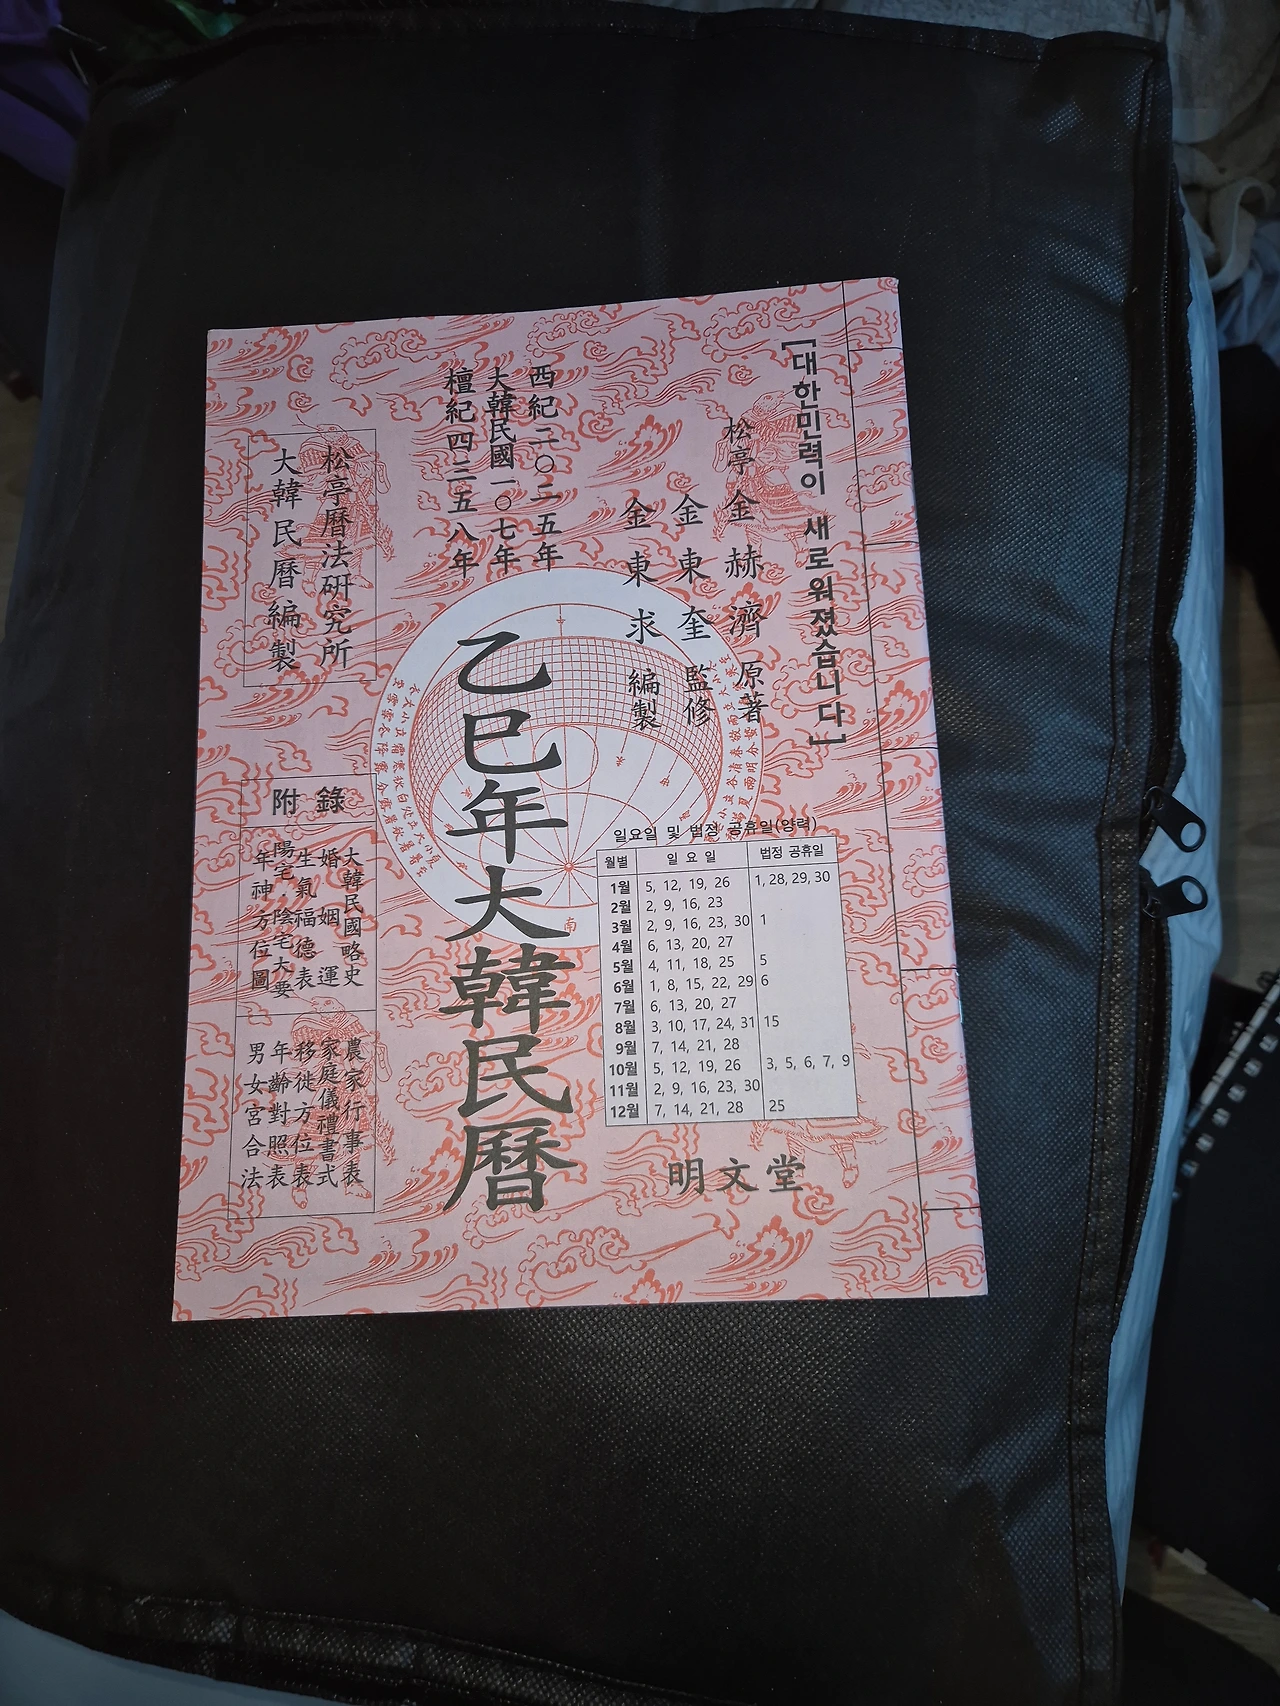 [대한민력이 새로워졌습니다]
松亭 金赫濟 原著
金東奎 監修
金東求 編製
西紀二〇二五年
大韓民國一〇七年
檀紀四三五八年
乙巳年大韓民曆
松亭曆法硏究所
大韓民曆編製
附錄
大韓民國略史
婚姻運
生氣福德表
陽宅陰宅大要
年神方位圖
農家行事表
家庭儀禮書式
移徙方位表
年齡對照表
男女宮合法
南
일요일 및 법정 공휴일(양력)
月別 일요일 법정 공휴일
1월 5, 12, 19, 26 1, 28, 29, 30
2월 2, 9, 16, 23
3월 2, 9, 16, 23, 30 1
4월 6, 13, 20, 27
5월 4, 11, 18, 25 5
6월 1, 8, 15, 22, 29 6
7월 6, 13, 20, 27
8월 3, 10, 17, 24, 31 15
9월 7, 14, 21, 28
10월 5, 12, 19, 26 3, 5, 6, 7, 9
11월 2, 9, 16, 23, 30
12월 7, 14, 21, 28 25
明文堂